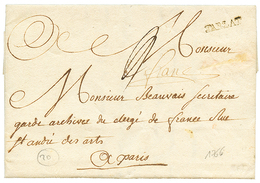 A Monsieur
SARLAT
franc
Monsieur Beauvais Secretaire
garde archives du clergé de france Rue
St andré des arts
A paris
20